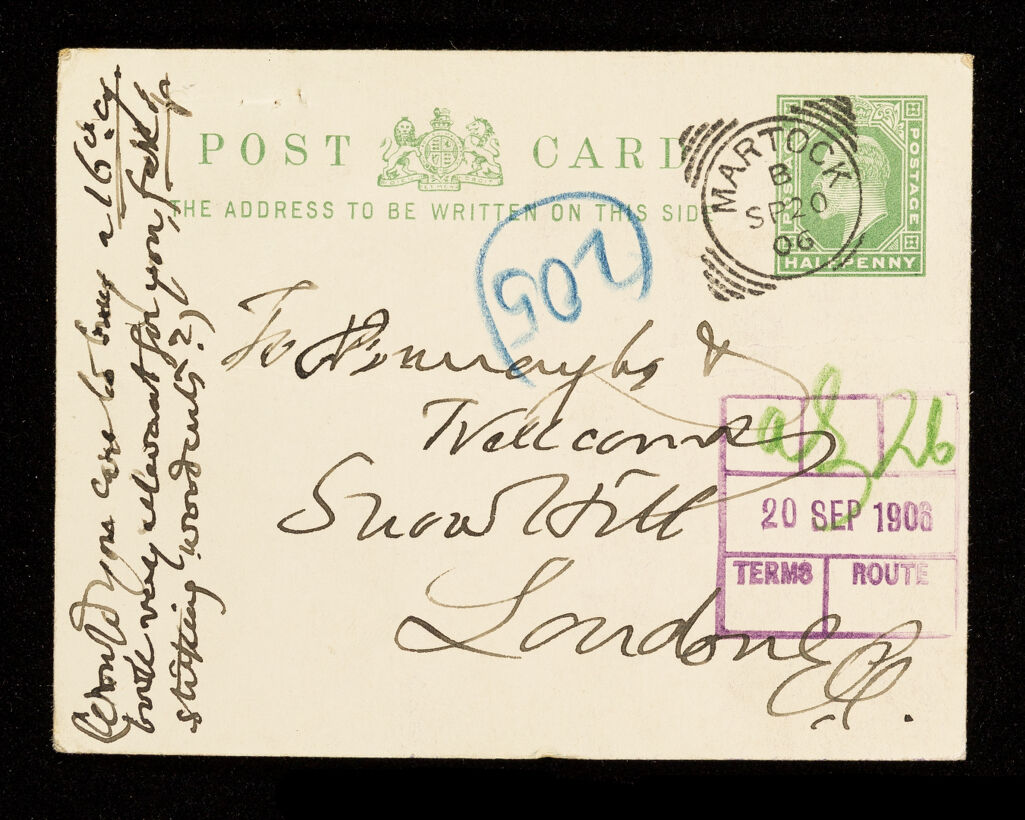 POST CARD
THE ADDRESS TO BE WRITTEN ON THIS SIDE
POSTAGE
HALFPENNY
MARTOCK
B
SP 20
06
205
To Burroughs &
Wellcome
Snow Hill
London E.C.
26
20 SEP 1906
TERMS
ROUTE
Would you care to buy a 16th cy.
book very relevant for you, full of
striking woodcuts?)